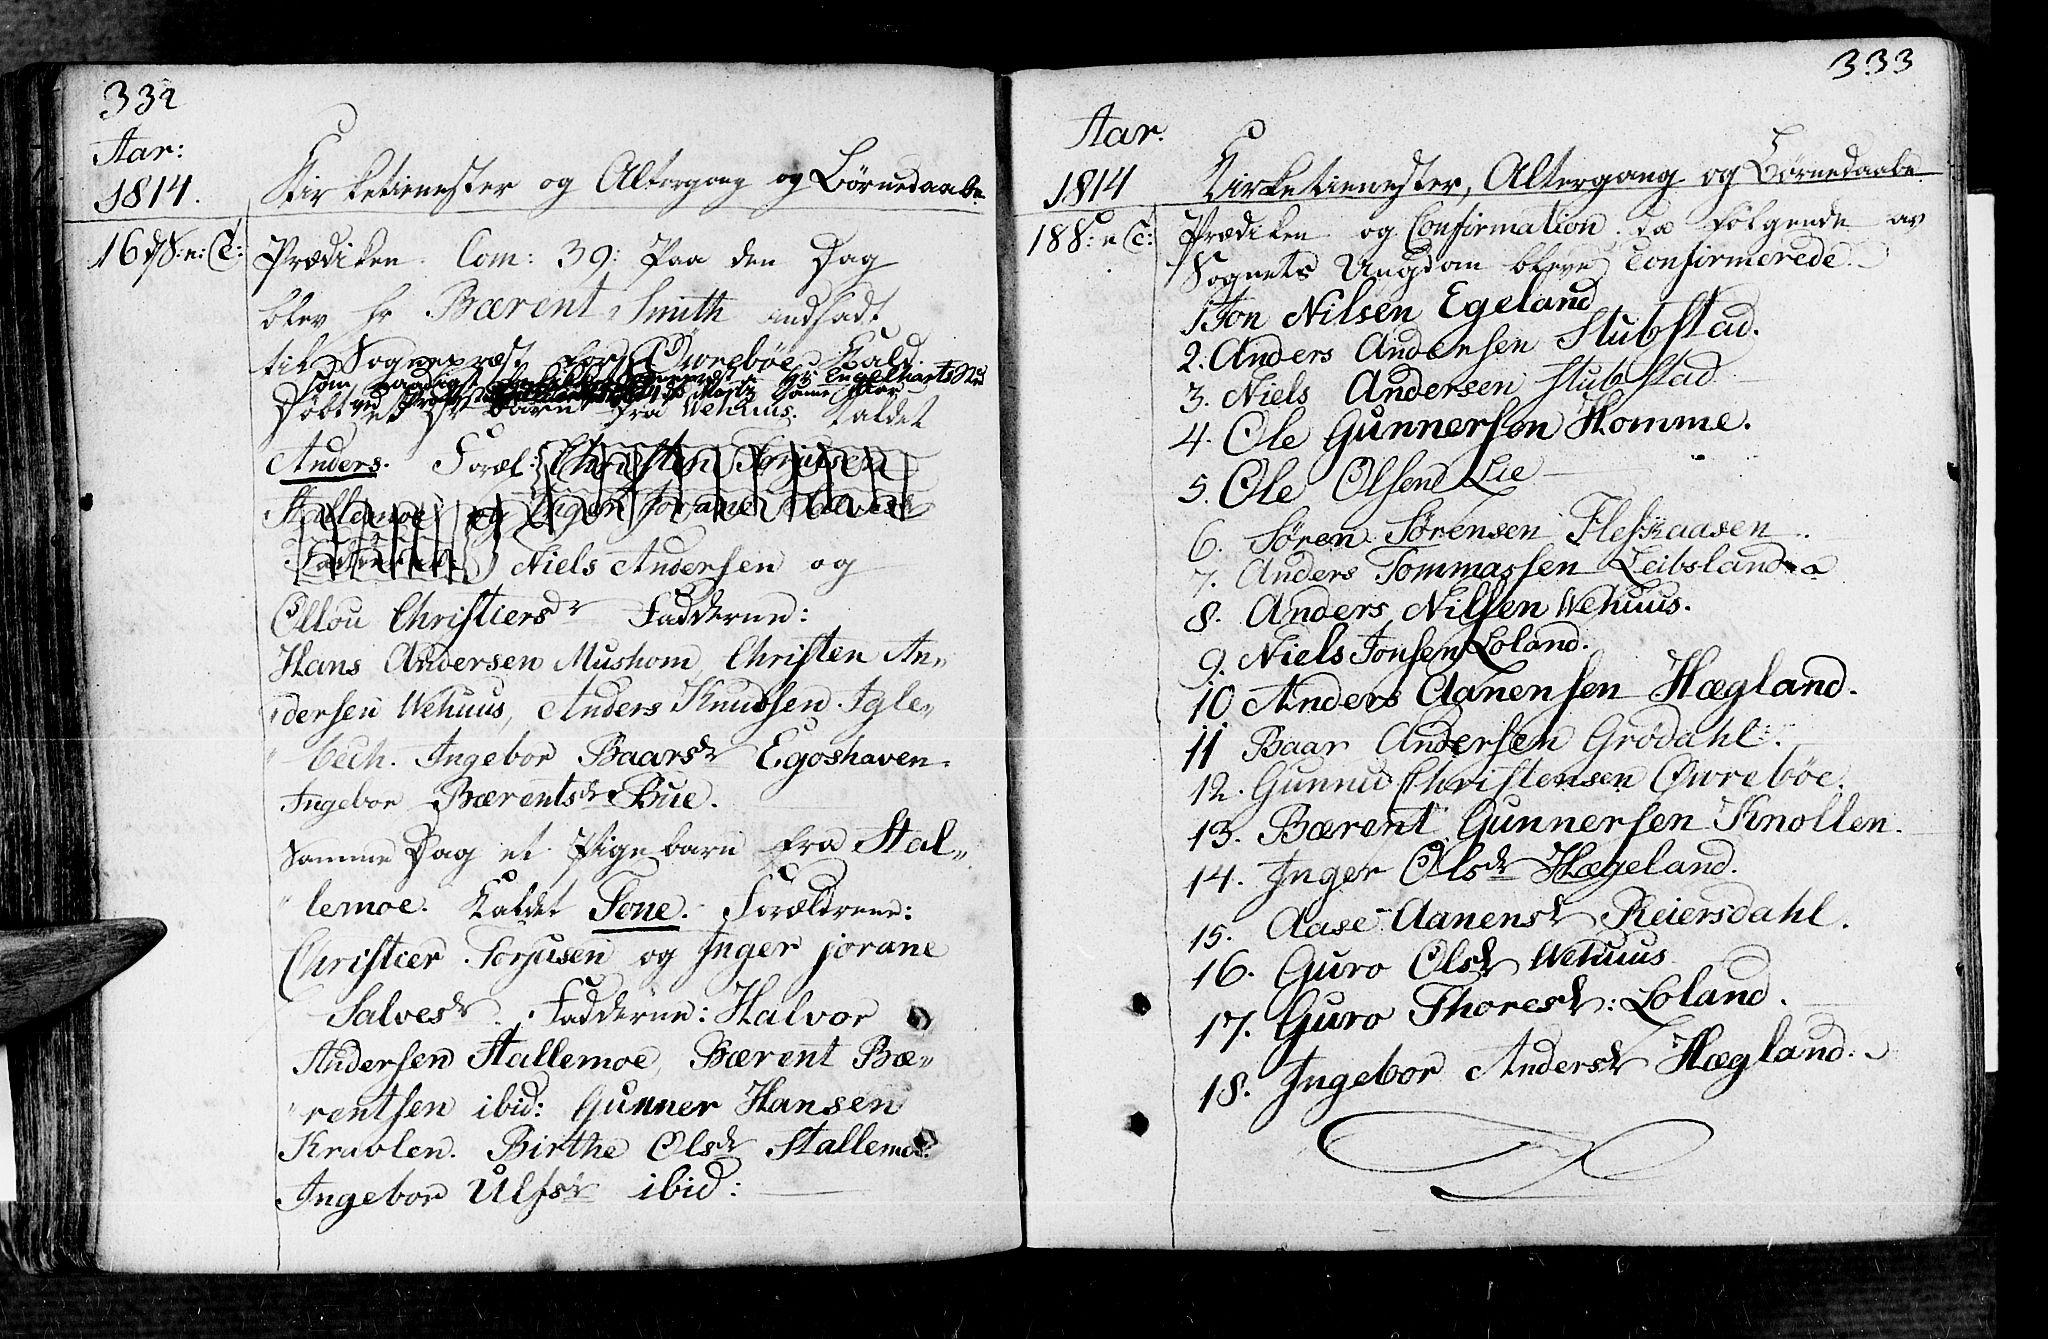 332
Aar:
1814.
Kirketienester og Altergang og Børnedaabe
16 d S: n: T:
Prædiken. Com: 39: Paa den Dag
blev hr Bærent Smith indsadt
til Sognepræst for Øvrebøe Kald.
Døbt et Dr barn fra Wehuus. kaldet
Anders. Foræl: Christen Torjusen
Stallemoe og Inger Jorane Salvesdr
Fadderne: Niels Andersen og
Ollou Christiersdr Fadderne:
Hans Andersen Mushom, Christen An„
„dersen Wehuus, Anders Knudsen Igle„
„bech. Ingebor Baarsdr Egoshaven.
Ingebor Bærentsdr Bue.
Samme Dag et Pigebarn fra Stal„
„lemoe. Kaldet Tone. Forældrene:
Christier Torjusen og Inger jorane
Salvesdr. Fadderne: Halvor
Andersen Stallemoe, Bærent Bæ„
„rentsen ibid: Gunner Hansen
Knolen. Birthe Olsdr Stallemoe.
Ingebor Ulfsdr ibid:
333
Aar.
1814
Kirketienester, Altergang og Børnedaabe
18 S: n T:
Prædiken og Confirmation da følgende av
Sognets Ungdom bleve Confirmerede.
1 Jon Nilsen Egeland
2. Anders Andersen Stubstad.
3. Niels Andersen Stubstad
4. Ole Gunnersen Homme.
5. Ole Olsen Lie
6. Søren Sørensen Fleskaasen.
7. Anders Tommassen Leibsland.
8. Anders Nilsen Wehuus.
9. Niels Jonsen Loland.
10 Anders Aanensen Hægland.
11 Baar Andersen Grødahl.
12. Gunnu Christensen Øvrebøe.
13. Bærent Gunnersen Knollen.
14. Inger Olsdr Hægeland.
15. Aase Aanensdr Reiersdahl.
16. Guro Olsdr Wehuus
17. Guro Thoresdr: Loland.
18. Ingebor Andersdr Hægland.